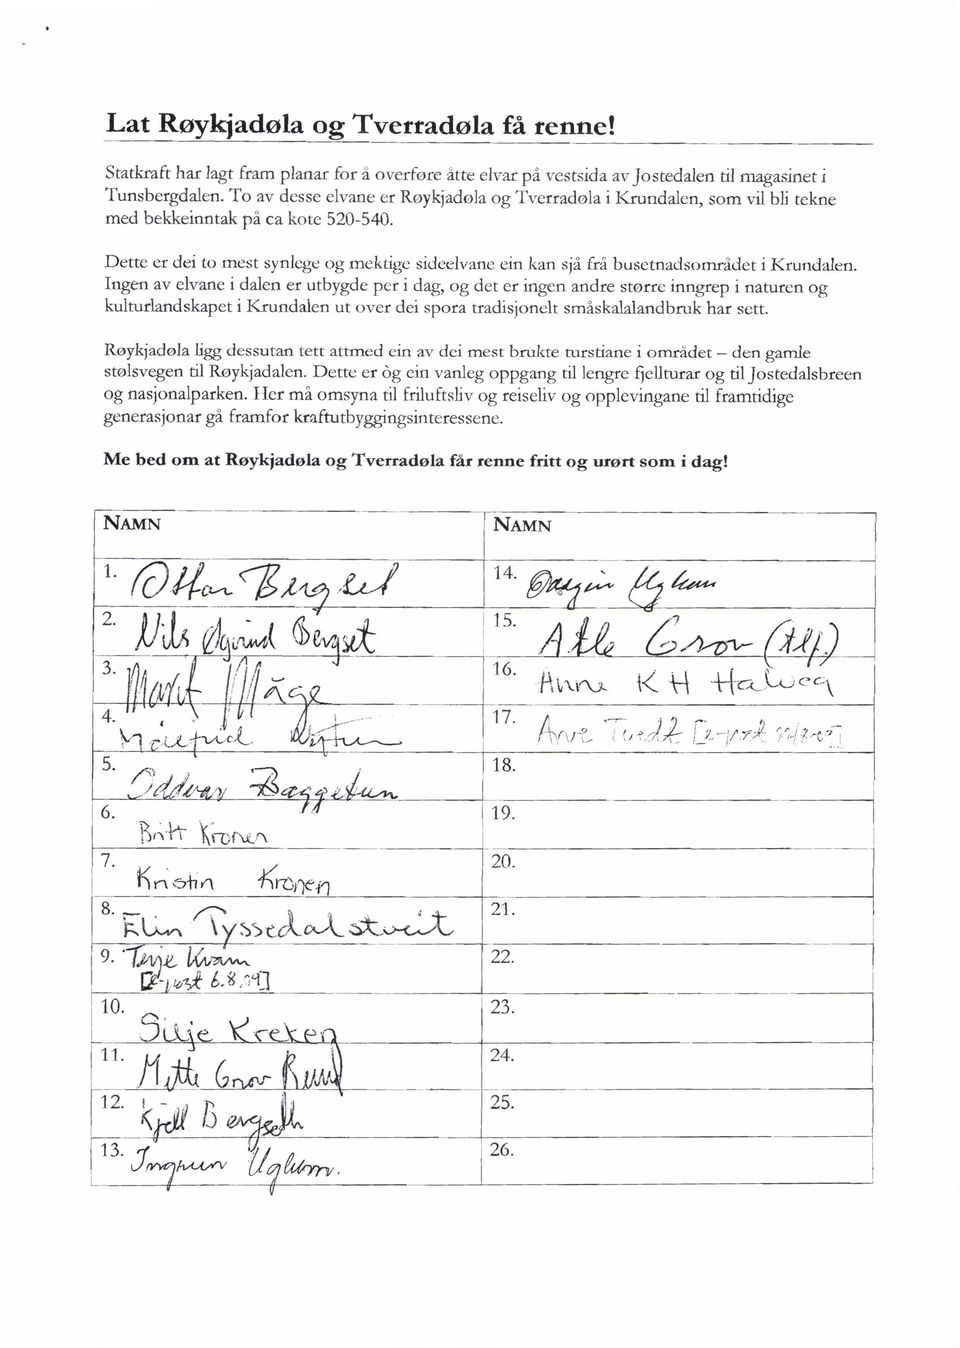 Lat Røykjadøla og Tverradøla få renne!
Statkraft har lagt fram planar for å overføre åtte elvar på vestsida av Jostedalen til magasinet i
Tunsbergdalen. To av desse elvane er Røykjadøla og Tverradøla i Krundalen, som vil bli tekne
med bekkeinntak på ca kote 520-540.
Dette er dei to mest synlege og mektige sideelvane ein kan sjå frå busetnadsområdet i Krundalen.
Ingen av elvane i dalen er utbygde per i dag, og det er ingen andre større inngrep i naturen og
kulturlandskapet i Krundalen ut over dei spora tradisjonelt småskalalandbruk har sett.
Røykjadøla ligg dessutan tett attmed ein av dei mest brukte turstiane i området – den gamle
stølsvegen til Røykjadalen. Dette er òg ein vanleg oppgang til lengre fjellturar og til Jostedalsbreen
og nasjonalparken. Her må omsyna til friluftsliv og reiseliv og opplevingane til framtidige
generasjonar gå framfor kraftutbyggingsinteressene.
Me bed om at Røykjadøla og Tverradøla får renne fritt og urørt som i dag!
NAMN
1. Ottar Bergset
2. Nils Øyvind Bergset
3. Marit Måge
4.
5. Oddvar Baggetun
6. Britt Kronen
7. Kristin Kronen
8. Elin Tyssedal stveit
9. Terje Kvam
[e-post 6.8.09]
10. Silje Kreken
11. Mette Grov Ruud
12. Kjell Bergseth
13. Ingunn Uglum.
NAMN
14. Uglum
15. Atle Grov (tlf.)
16. Anne K H Halveg
17. Arve Tvedt [e-post
18.
19.
20.
21.
22.
23.
24.
25.
26.